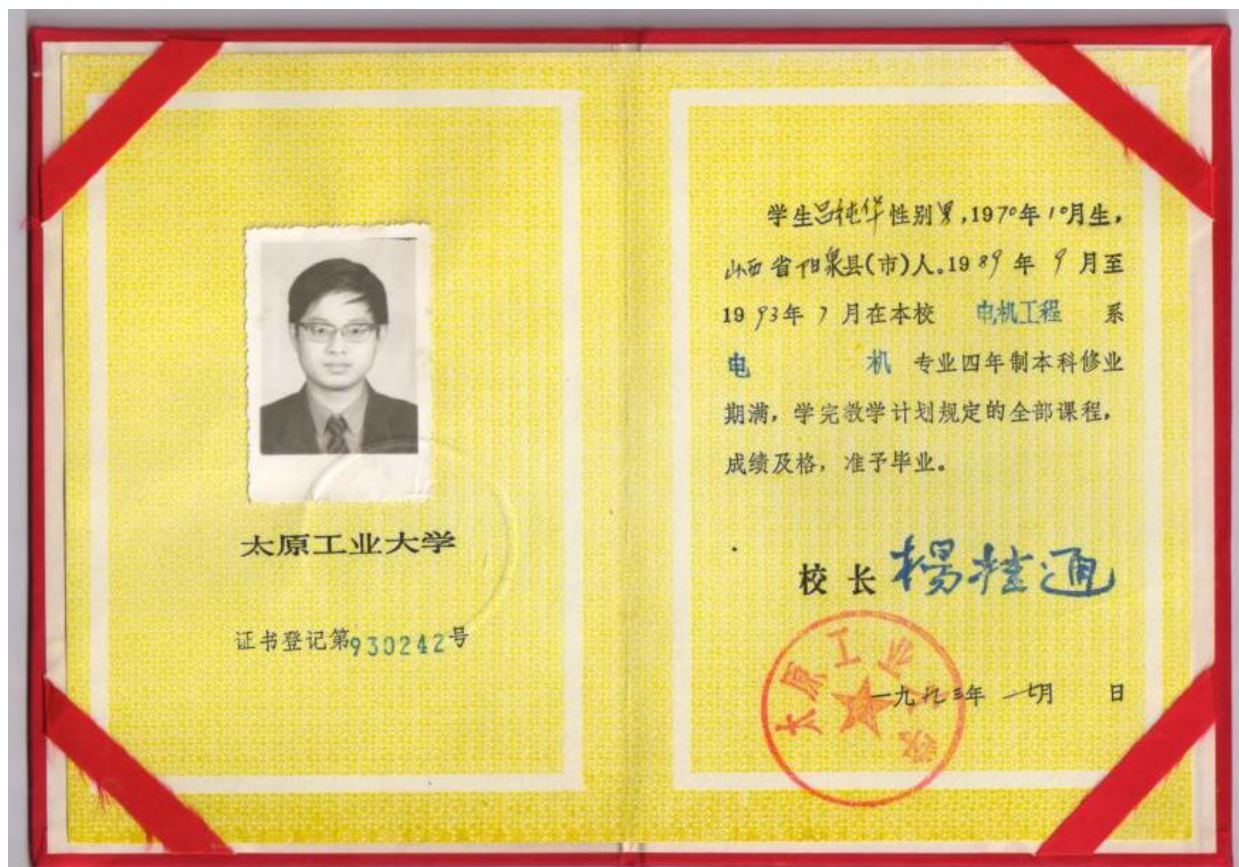 太原工业大学
证书登记第930242号
学生吕纯华性别男,1970年10月生,
山西省阳泉县(市)人。1989年9月至
1993年7月在本校 电机工程 系
电 机 专业四年制本科修业
期满,学完教学计划规定的全部课程,
成绩及格,准予毕业。
校长 杨桂通
一九九三年 七月 日
太原工业大学